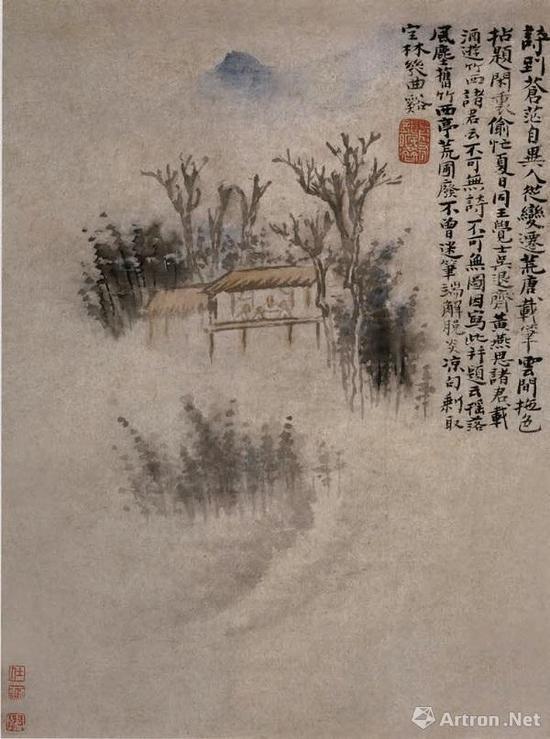 詩到蒼茫自異人從變遷荒唐載筆雲間拖色
拈題閑裏偷忙夏日同王覺士吳退齋黃燕思諸君載
酒遊竹西諸君云不可無詩不可無圖因寫此并題云搖落
風塵舊竹西亭荒圃廢不曾迷筆端解脫炎涼句剩取
空林幾曲谿
Artron.Net